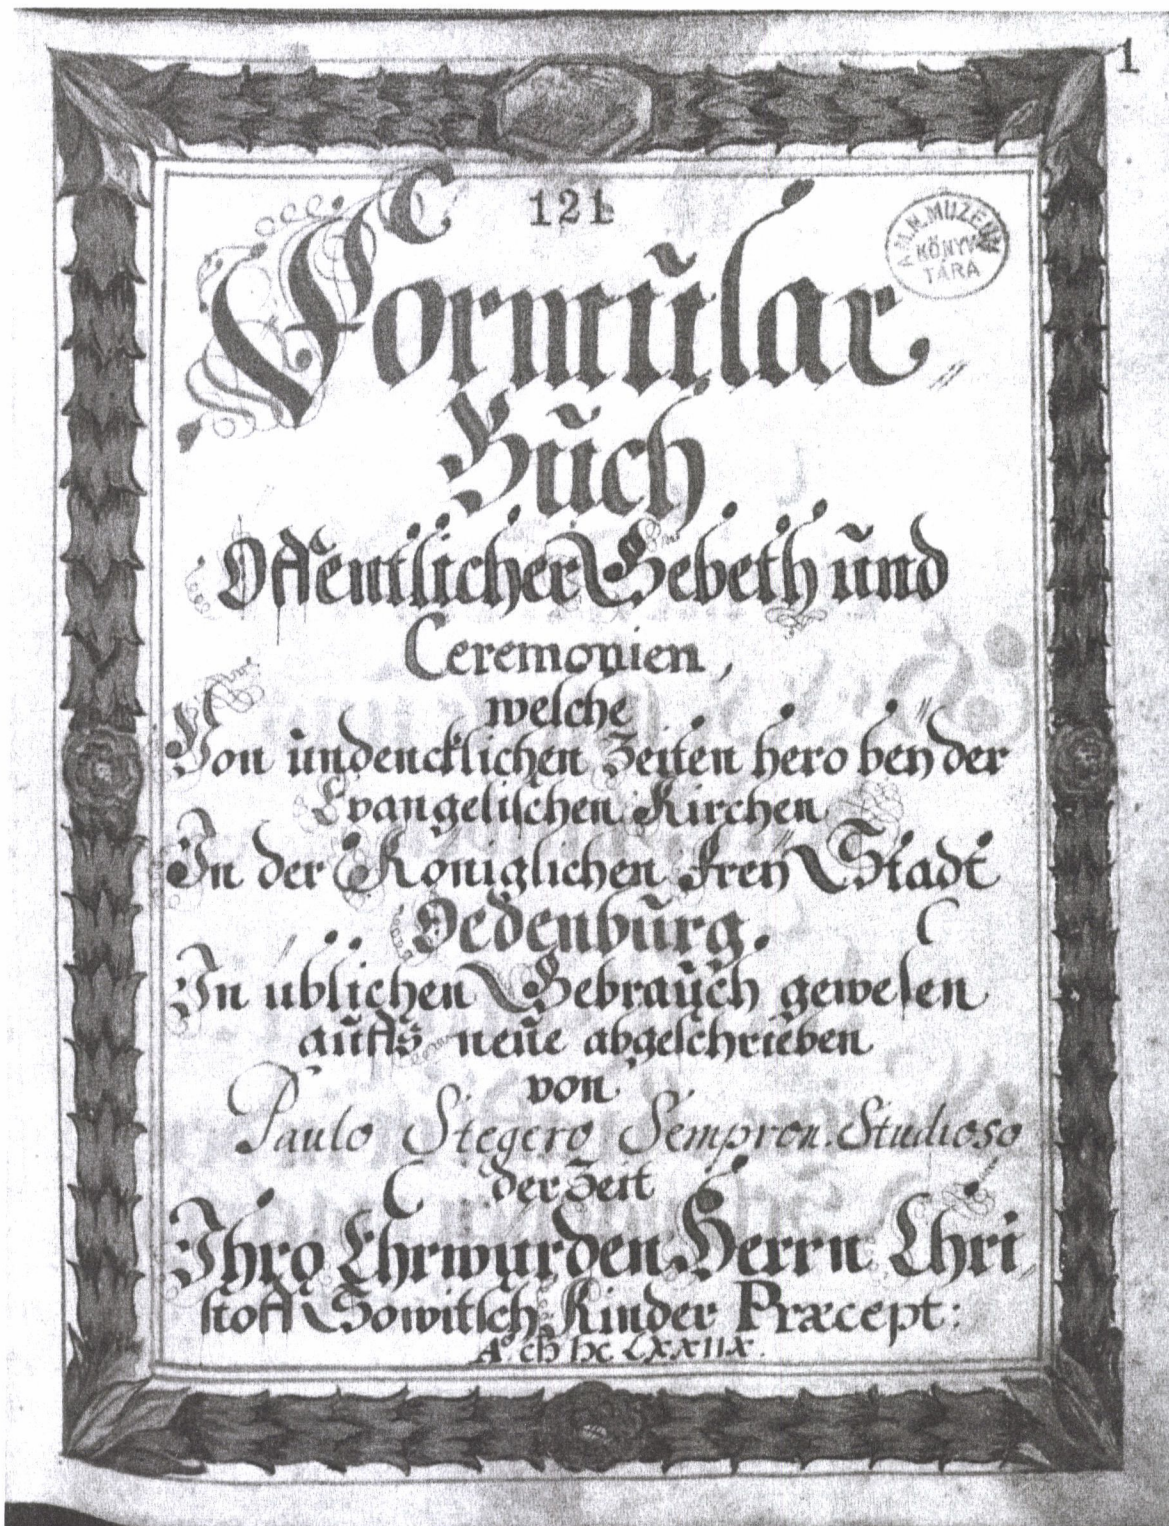 1
121
A M.N. MUZEUM
KÖNYV
TÁRA
Formũlar
Bũch
Offentlicher Gebeth ũnd
Ceremonien,
welche
Von ũndencklichen Zeiten hero beÿ der
Evangelischen Kirchen
In der Königlichen Freÿ Stadt
Oedenbũrg.
In üblichen Gebraũch gewesen
aũffs neũe abgeschrieben
von
Paulo Stegero Sempron. Studioso
der Zeit
Ihro Ehrwürden Herrn Chri
stoff Sowitsch Kinder Præcept:
Aº.